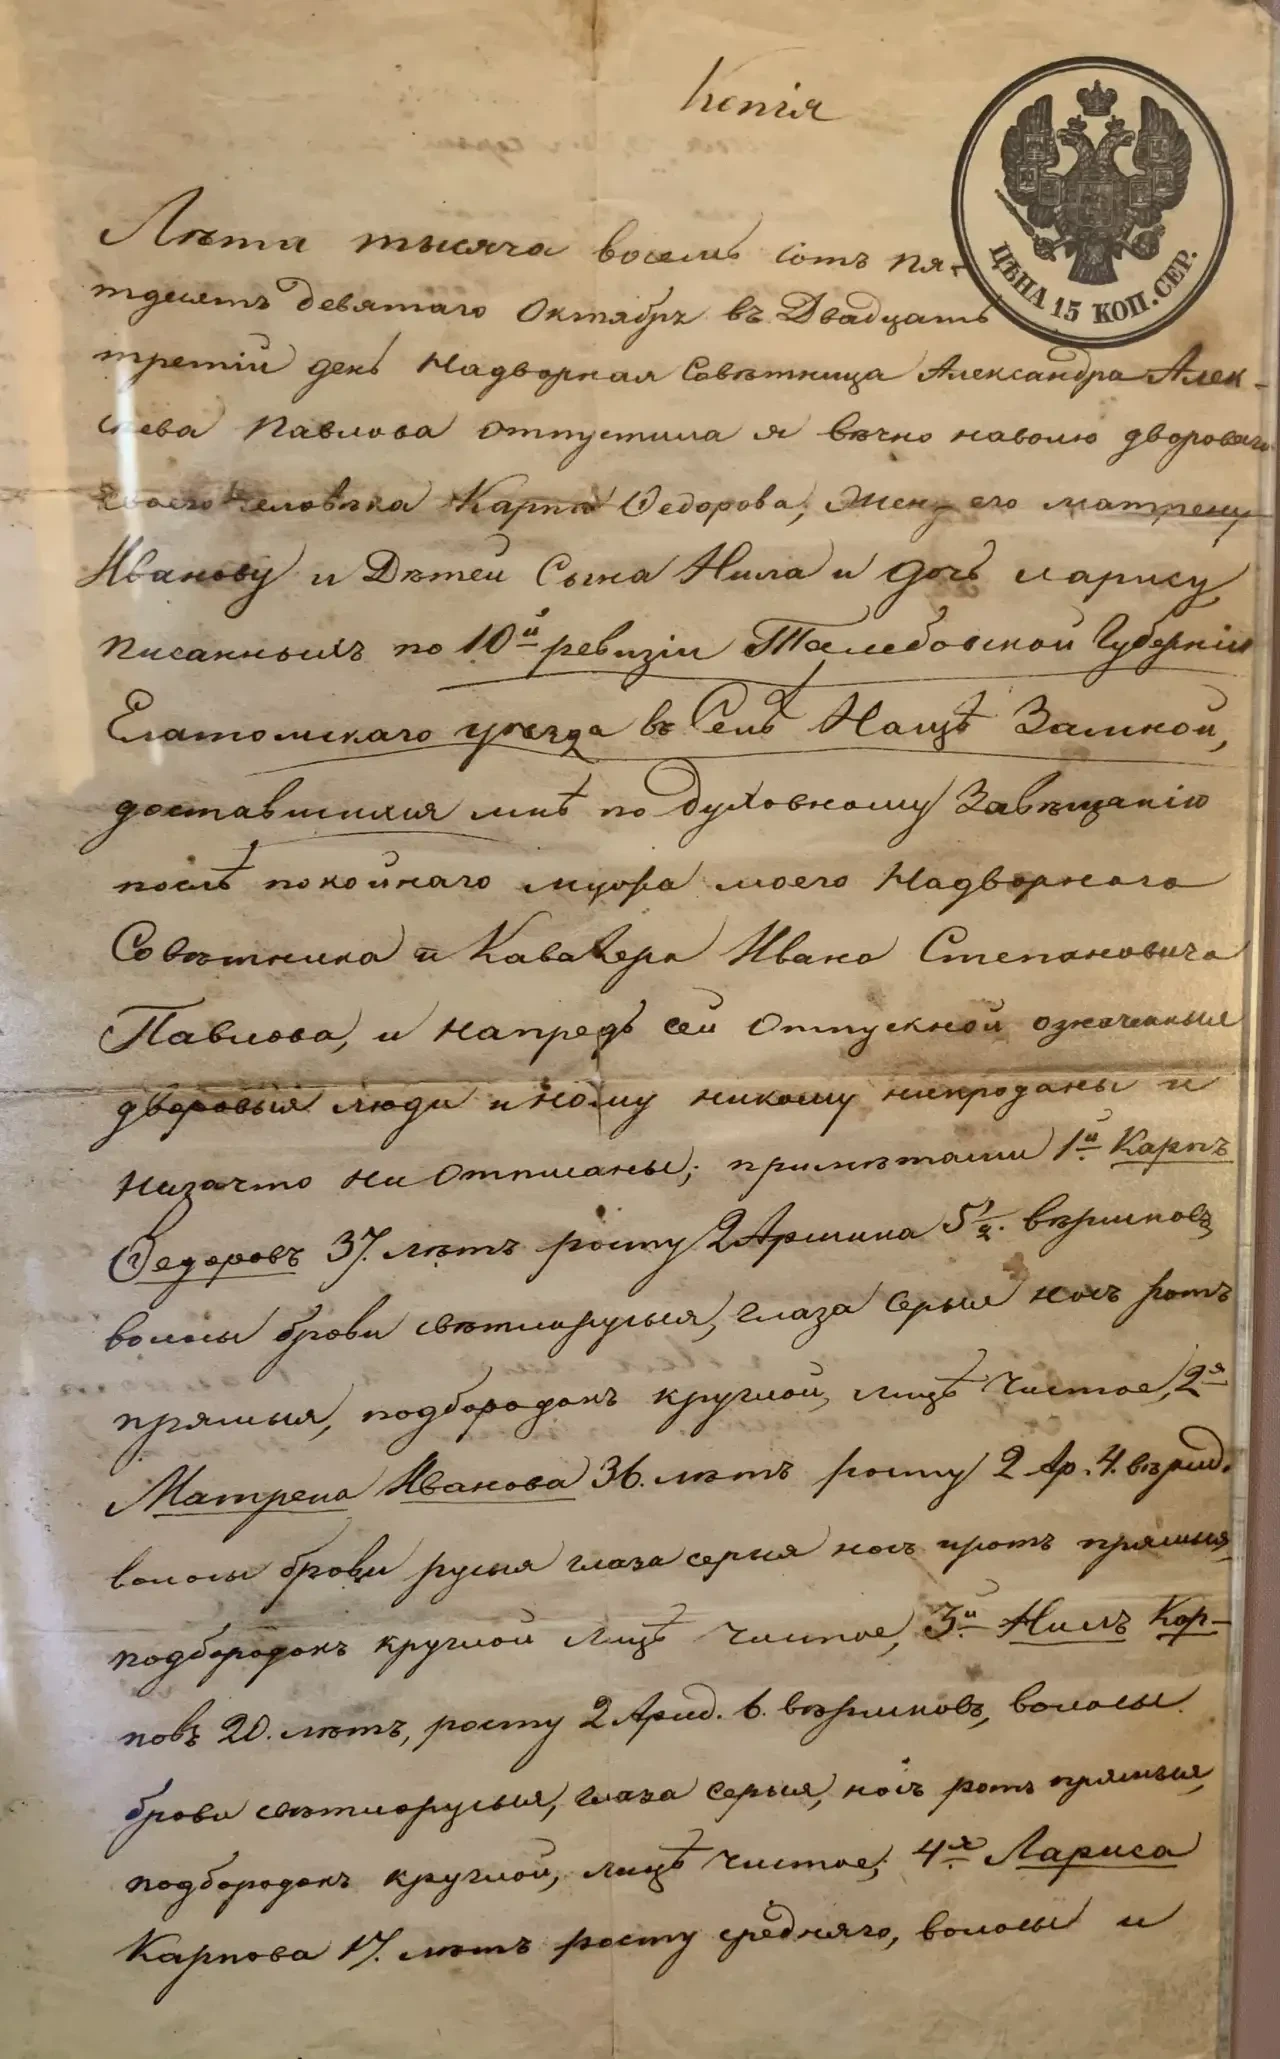 Копія
ЦѢНА 15 КОП. СЕР.
Лѣта тысяча восемь сотъ пя-
тдесятъ девятаго Октября въ Двадцать
третій день Надворная Совѣтница Александра Алек-
сѣева Павлова отпустила я вѣчно наволю двороваго
своего человѣка Карпа Ѳедорова, Жену его матрену
Иванову и Дѣтей Сына Нила и дочь ларису,
писанныхъ по 10й ревизіи Тамбовской Губерніи
Елатомскаго уѣзда въ Селѣ Нащѣ Замкой,
доставшихся мнѣ по духовному Завѣщанію
послѣ покойнаго мужа моего Надворнаго
Совѣтника и Кавалера Ивана Степановича
Павлова, и напредь сей отпускной означенныя
дворовыя люди иному никому непроданы и
низачто ни отписаны; примѣтами 1й Карпъ
Ѳедоровъ 37. лѣтъ росту 2 Аршина 5 1/2. вѣршковъ,
волосы брови свѣтлорусыя, глаза серыя носъ ротъ
прямыя, подбородокъ круглой, лицѣ чистое, 2я
Матрена Иванова 36. лѣтъ росту 2 Ар. 4. вѣрш.
волосы брови русыя глаза серыя носъ иротъ прямыя,
подбородокъ круглой лицѣ чистое, 3й Нилъ Кар-
повъ 20. лѣтъ, росту 2 Арш. 6. вѣршковъ, волосы
брови свѣтлорусыя, глаза серыя, носъ ротъ прямыя,
подбородокъ круглой, лицѣ чистое; 4я Лариса
Карпова 17. лѣтъ росту средняго, волосы и